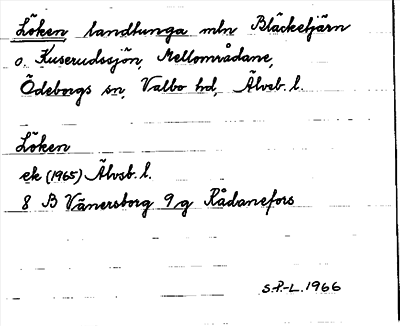 Löken landtunga mln Bläcketjärn
o. Kuserudssjön, Mellområdane,
Ödeborgs sn, Valbo hd, Älvsb. l.
Löken
ek (1965) Älvsb. l.
8 B Vänersborg 9 g Rådanefors
S.P.-L. 1966